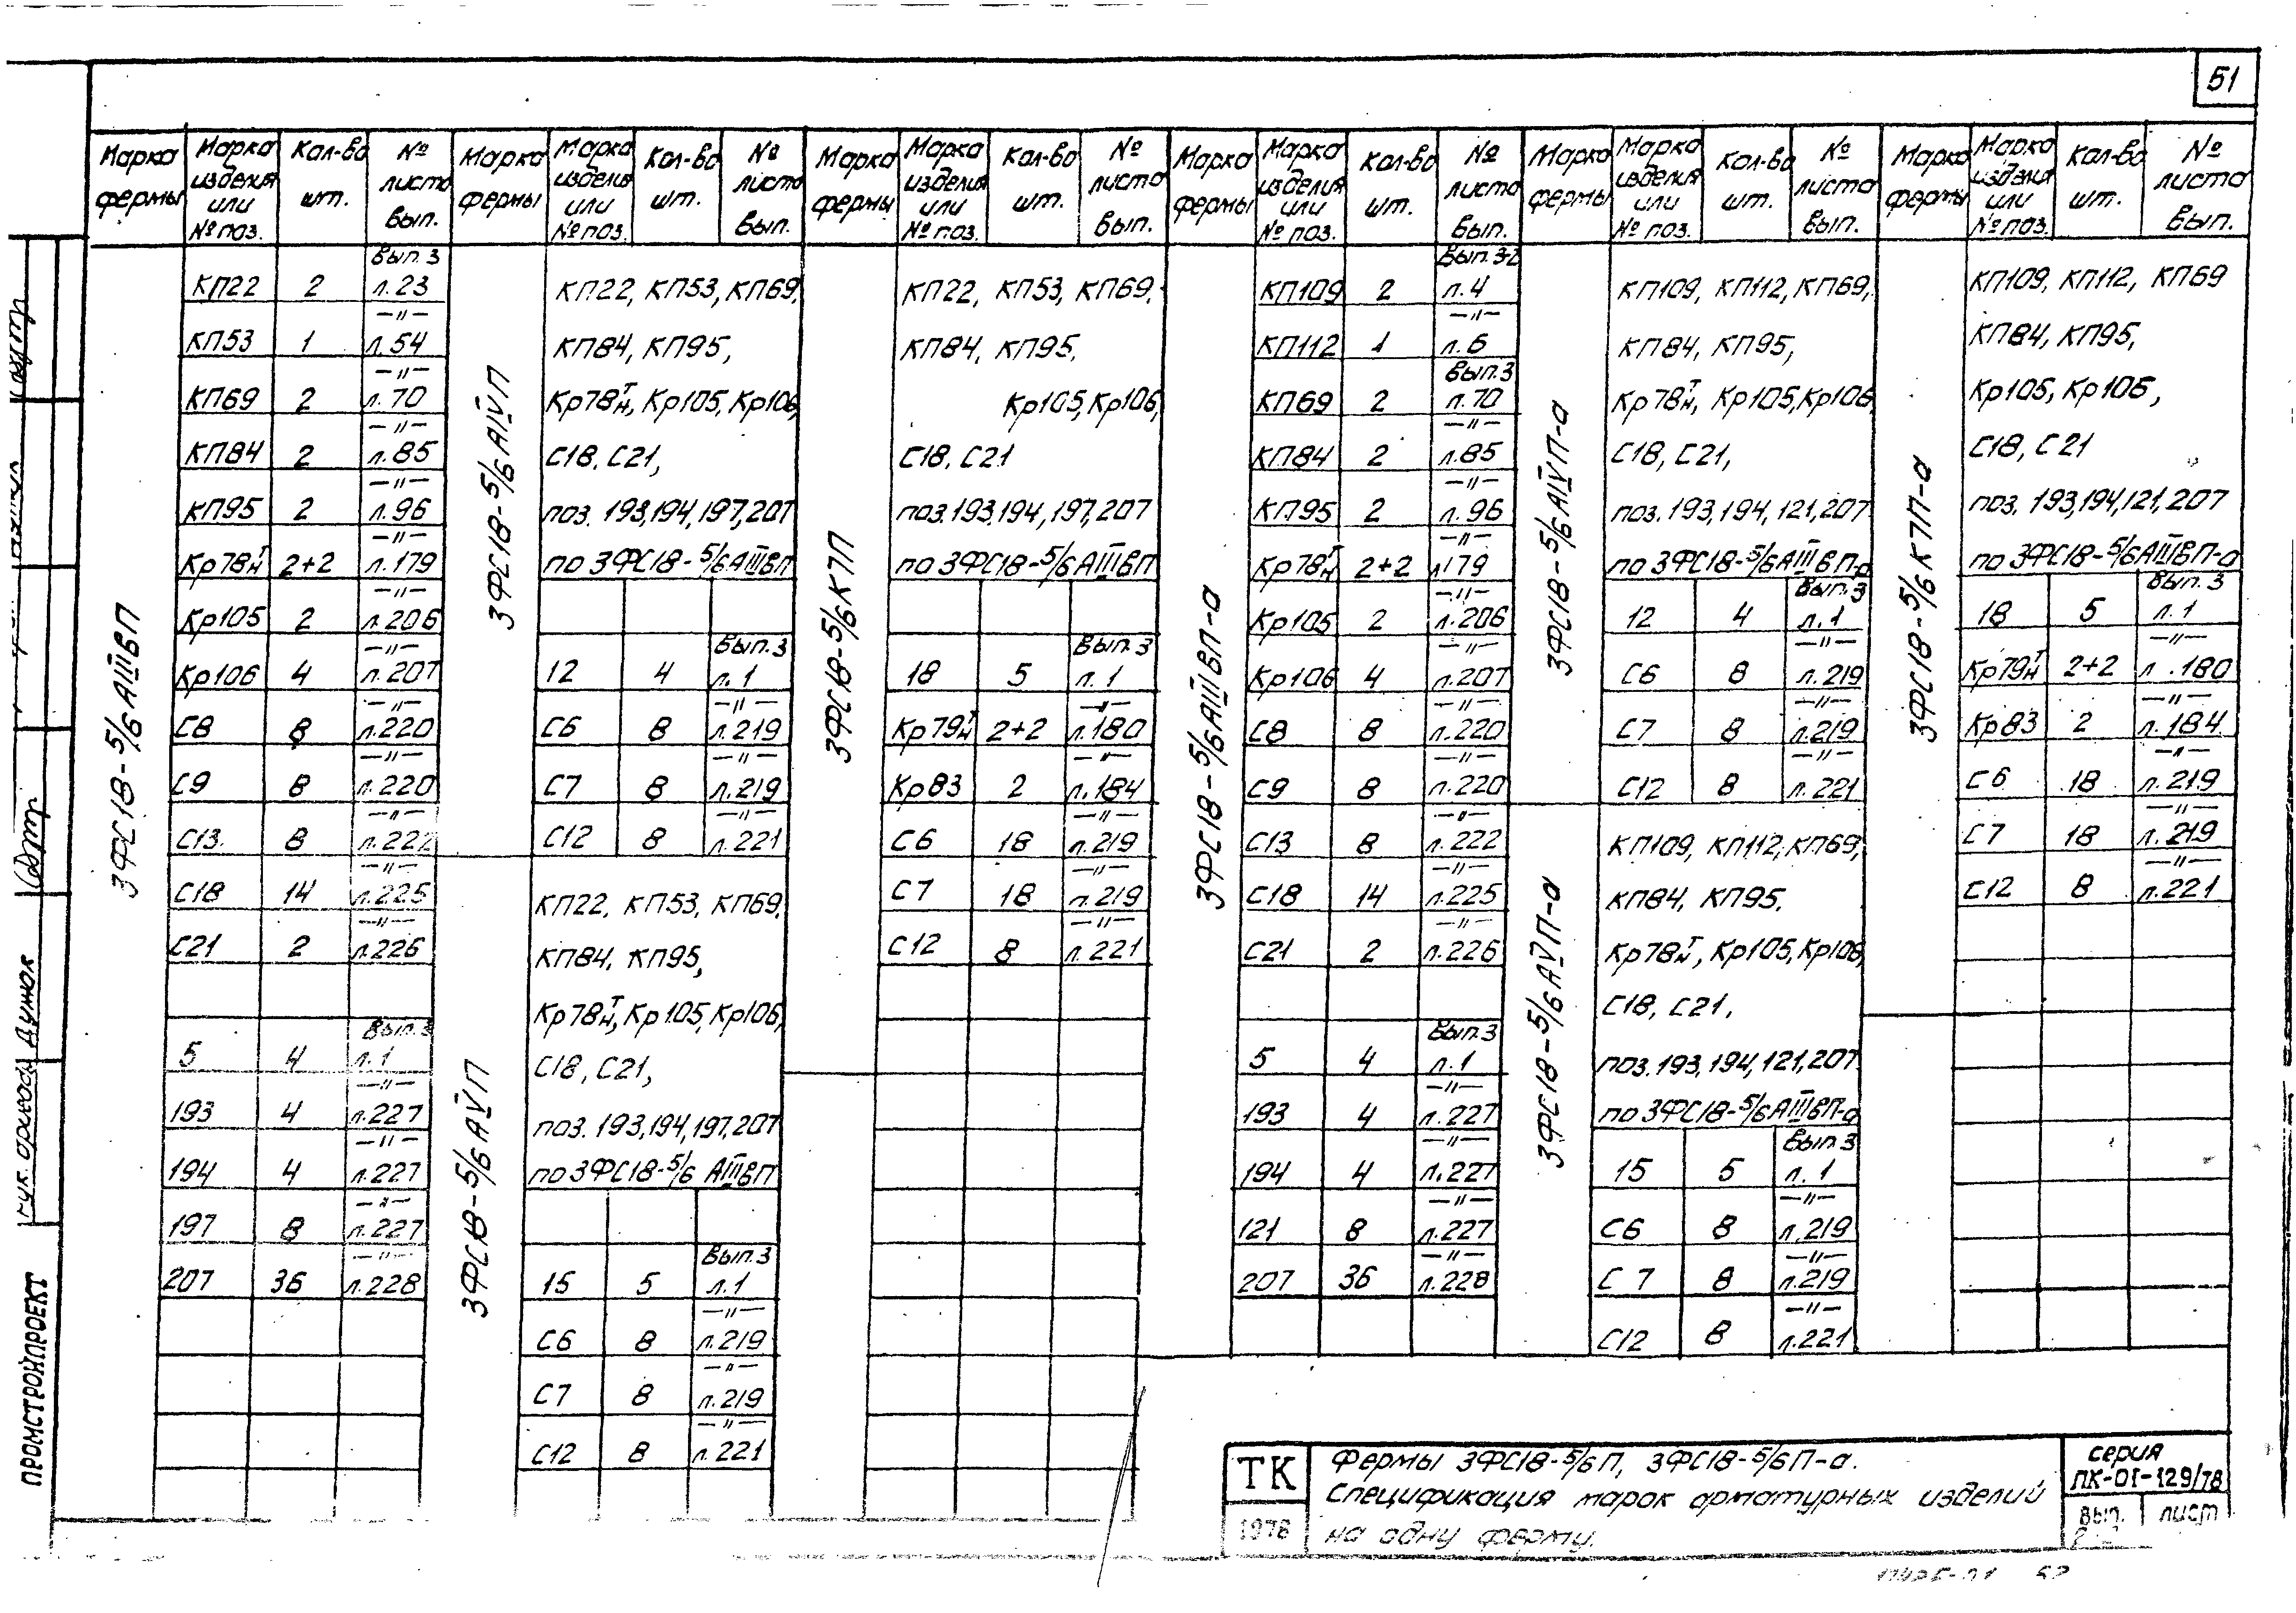 51
Марка фермы | Марка изделия или № поз. | Кол-во шт. | № листа вып.
3ФС18-5/6 АIIIвП
КП22 2 Вып. 3 л.23
КП53 1 —"— л.54
КП69 2 —"— л.70
КП84 2 —"— л.85
КП95 2 —"— л.96
Кр78т/н 2+2 —"— л.179
Кр105 2 —"— л.206
Кр106 4 —"— л.207
С8 8 —"— л.220
С9 8 —"— л.220
С13 8 —"— л.222
С18 14 —"— л.225
С21 2 —"— л.226
5 4 Вып. 3 л.1
193 4 —"— л.227
194 4 —"— л.227
197 8 —"— л.227
207 36 —"— л.228
Марка фермы | Марка изделия или № поз. | Кол-во шт. | № листа вып.
3ФС18-5/6 АIVП
КП22, КП53, КП69,
КП84, КП95,
Кр78т/н, Кр105, Кр106,
С18, С21,
поз. 193, 194, 197, 207
по 3ФС18-5/6АIIIвП
12 4 Вып. 3 л.1
С6 8 —"— л.219
С7 8 —"— л.219
С12 8 —"— л.221
3ФС18-5/6 АVП
КП22, КП53, КП69,
КП84, КП95,
Кр78т/н, Кр105, Кр106,
С18, С21,
поз. 193, 194, 197, 207
по 3ФС18-5/6 АIIIвП
15 5 Вып. 3 л.1
С6 8 —"— л.219
С7 8 —"— л.219
С12 8 —"— л.221
Марка фермы | Марка изделия или № поз. | Кол-во шт. | № листа вып.
3ФС18-5/6 К7П
КП22, КП53, КП69,
КП84, КП95,
Кр105, Кр106,
С18, С21
поз. 193, 194, 197, 207
по 3ФС18-5/6 АIIIвП
18 5 Вып. 3 л.1
Кр79т/н 2+2 —"— л.180
Кр83 2 —"— л.184
С6 18 —"— л.219
С7 18 —"— л.219
С12 8 —"— л.221
Марка фермы | Марка изделия или № поз. | Кол-во шт. | № листа вып.
3ФС18-5/6АIIIвП-а
КП109 2 Вып. 3-2 л.4
КП112 1 —"— л.6
КП69 2 Вып. 3 л.70
КП84 2 —"— л.85
КП95 2 —"— л.96
Кр78т/н 2+2 —"— л.179
Кр105 2 —"— л.206
Кр106 4 —"— л.207
С8 8 —"— л.220
С9 8 —"— л.220
С13 8 —"— л.222
С18 14 —"— л.225
С21 2 —"— л.226
5 4 Вып. 3 л.1
193 4 —"— л.227
194 4 —"— л.227
121 8 —"— л.227
207 36 —"— л.228
Марка фермы | Марка изделия или № поз. | Кол-во шт. | № листа вып.
3ФС18-5/6 АIVП-а
КП109, КП112, КП69,
КП84, КП95,
Кр78т/н, Кр105, Кр106,
С18, С21,
поз. 193, 194, 121, 207
по 3ФС18-5/6АIIIвП-а
12 4 Вып. 3 л.1
С6 8 —"— л.219
С7 8 —"— л.219
С12 8 —"— л.221
3ФС18-5/6 АVП-а
КП109, КП112, КП69,
КП84, КП95,
Кр78т/н, Кр105, Кр106,
С18, С21,
поз. 193, 194, 121, 207
по 3ФС18-5/6АIIIвП-а
15 5 Вып 3 л.1
С6 8 —"— л.219
С7 8 —"— л.219
С12 8 —"— л.221
Марка фермы | Марка изделия или № поз. | Кол-во шт. | № листа вып.
3ФС18-5/6 К7П-а
КП109, КП112, КП69
КП84, КП95,
Кр105, Кр106,
С18, С21
поз. 193, 194, 121, 207
по 3ФС18-5/6АIIIвП-а
18 5 Вып. 3 л.1
Кр79т/н 2+2 —"— л.180
Кр83 2 —"— л.184
С6 18 —"— л.219
С7 18 —"— л.219
С12 8 —"— л.221
ПРОМСТРОЙПРОЕКТ
Дужак
ТК
1978
Фермы 3ФС18-5/6П, 3ФС18-5/6П-а.
Спецификация марок арматурных изделий
на одну ферму.
серия
ПК-01-129/78
вып. лист
52